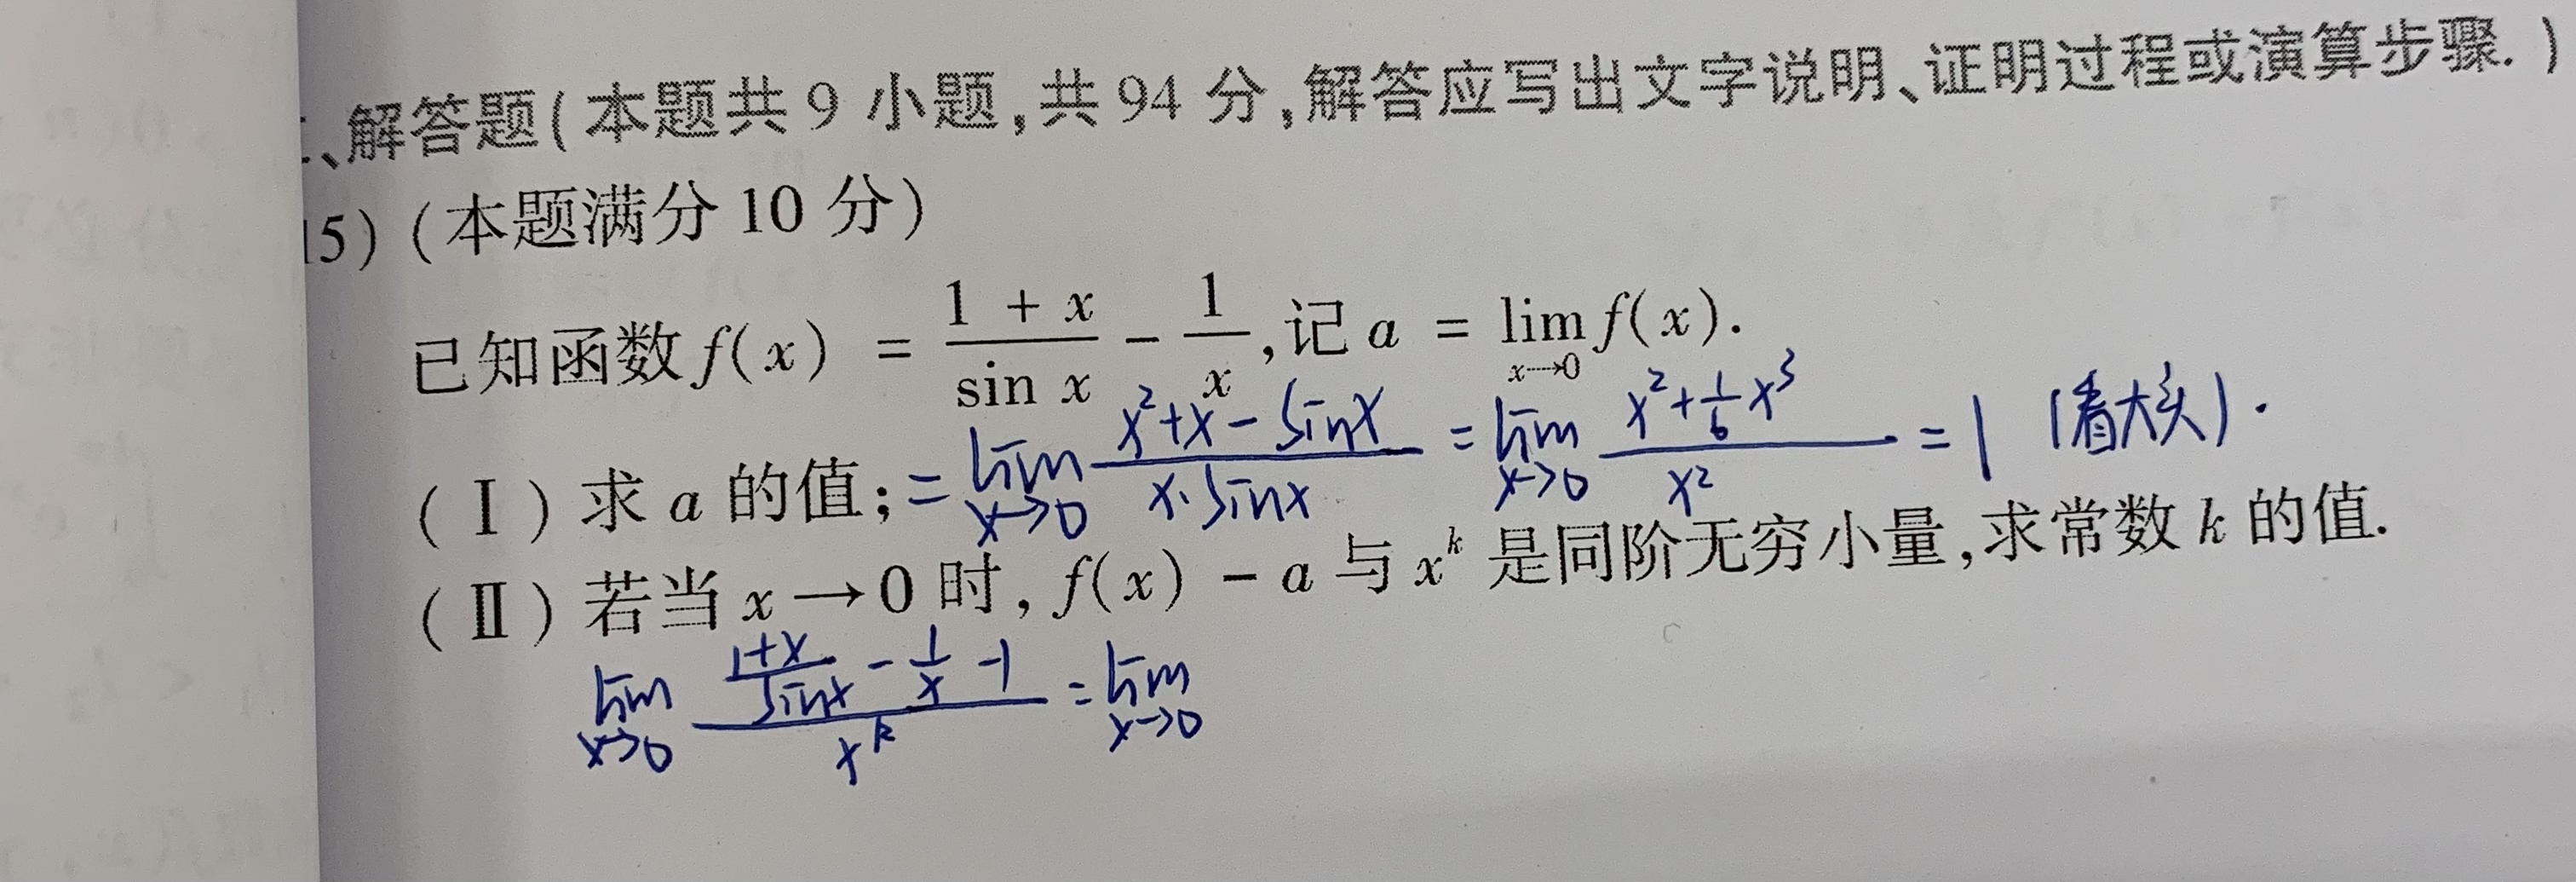 、解答题(本题共9小题,共94分,解答应写出文字说明、证明过程或演算步骤.)
15)(本题满分10分)
已知函数f(x) = \frac{1 + x}{\sin x} - \frac{1}{x},记a = \lim_{x→0} f(x).
(Ⅰ)求a的值; = \lim_{x→0} \frac{x^2+x-\sin x}{x·\sin x} = \lim_{x→0} \frac{x^2+\frac{1}{6}x^3}{x^2} = 1 (看大头).
(Ⅱ)若当x→0时,f(x) - a与x^k是同阶无穷小量,求常数k的值.
\lim_{x→0} \frac{\frac{1+x}{\sin x} - \frac{1}{x} - 1}{x^k} = \lim_{x→0}